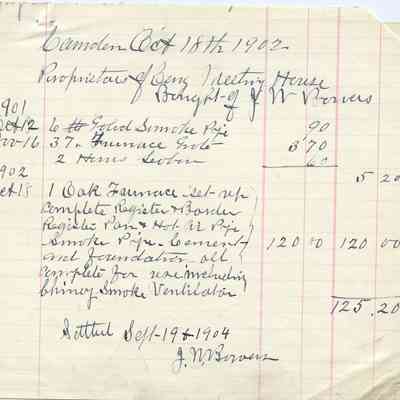 Camden Oct 18th 1902
Proprietors of Cong Meeting House
Bought of J W Bowers
901
ct 12 6 lb Galld Smoke Pipe 90
ov 16 37 " Furnace Grate 3 70
2 Hours 60 5 20
902
ct 18 1 Oak Furnace set up
complete Register & Border
Register Pan & Hot Air Pipe
Smoke Pipe Cement 120 00 120 00
and foundation all
complete for use including
Chimey Smoke Ventilator
125.20
Settled Sept 19th 1904
J. W. Bowers